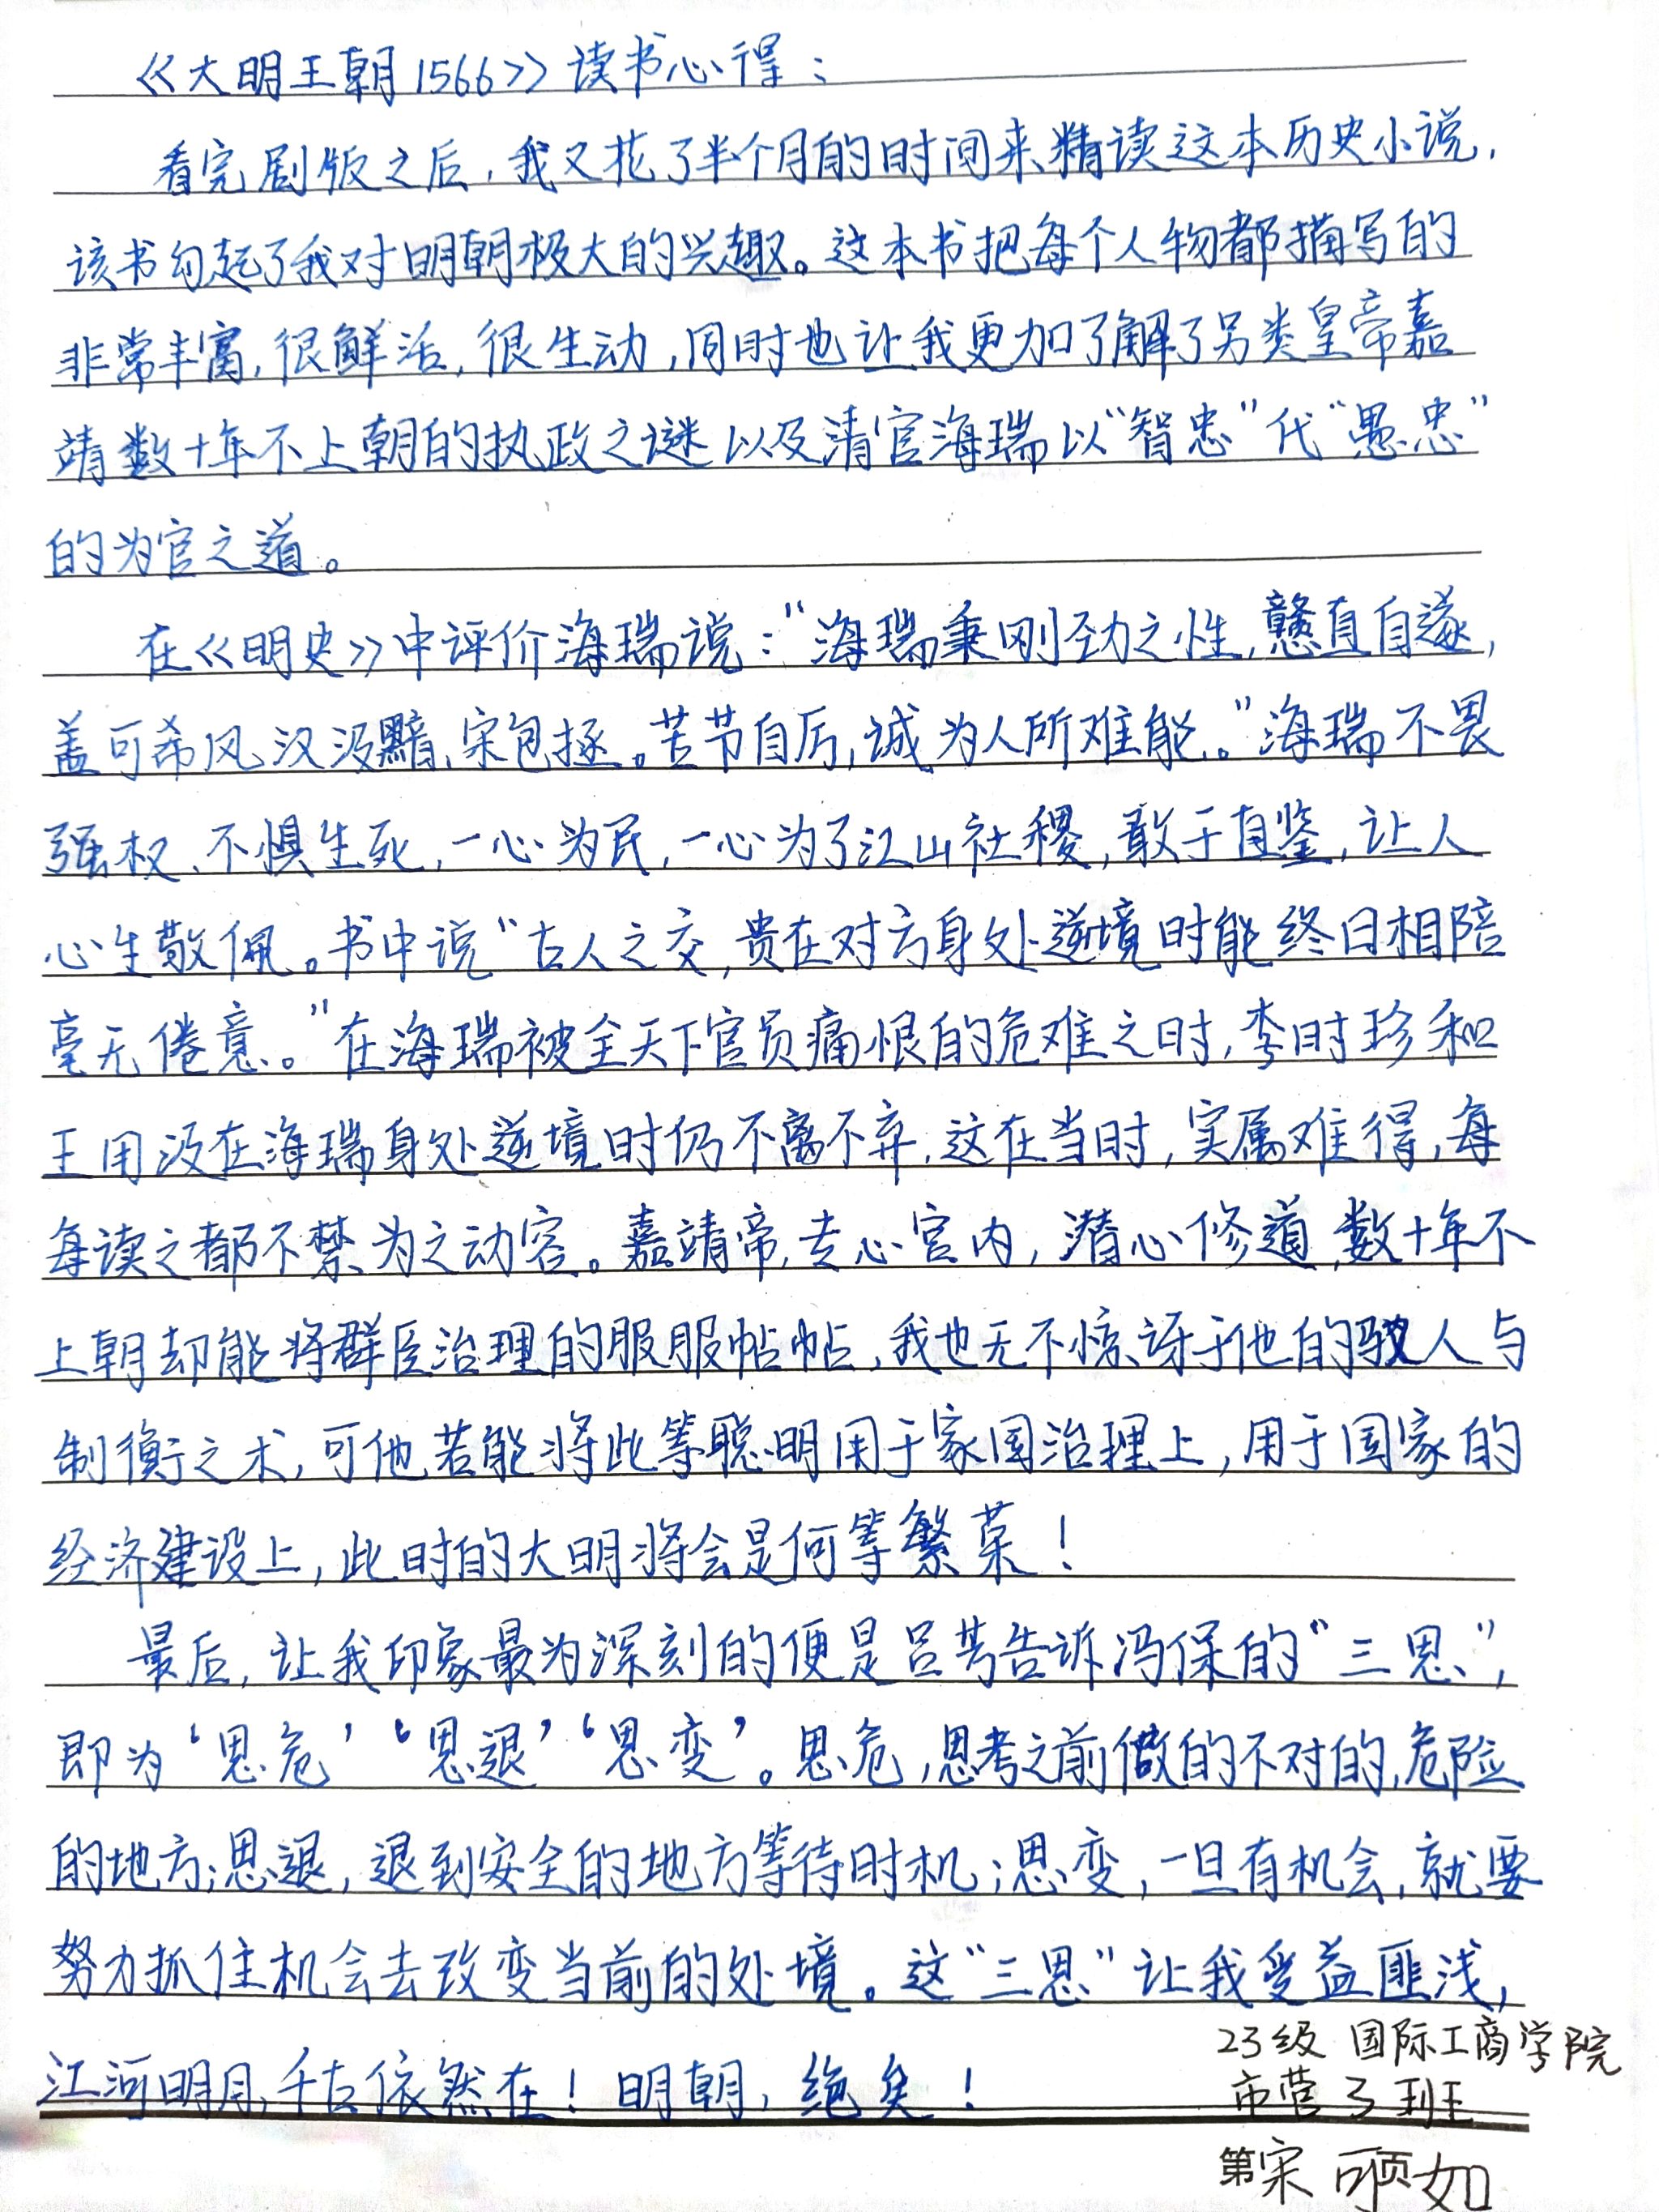 《大明王朝1566》读书心得：
看完剧版之后，我又花了半个月的时间来精读这本历史小说，
该书勾起了我对明朝极大的兴趣。这本书把每个人物都描写的
非常丰富，很鲜活，很生动，同时也让我更加了解了另类皇帝嘉
靖数十年不上朝的执政之谜以及清官海瑞以“智忠”代“愚忠”
的为官之道。
在《明史》中评价海瑞说：“海瑞秉刚劲之性，戆直自遂，
盖可希风汉汲黯、宋包拯。苦节自厉，诚为人所难能。”海瑞不畏
强权、不惧生死，一心为民，一心为了江山社稷，敢于直鉴，让人
心生敬佩。书中说“古人之交，贵在对方身处逆境时能终日相陪
毫无倦意。”在海瑞被全天下官员痛恨的危难之时，李时珍和
王用汲在海瑞身处逆境时仍不离不弃，这在当时，实属难得，每
每读之都不禁为之动容。嘉靖帝，专心宫内，潜心修道，数十年不
上朝却能将群臣治理的服服帖帖，我也无不惊讶于他的驭人与
制衡之术，可他若能将此等聪明用于家国治理上，用于国家的
经济建设上，此时的大明将会是何等繁荣！
最后，让我印象最为深刻的便是吕芳告诉冯保的“三思”，
即为‘思危’‘思退’‘思变’。思危，思考之前做的不对的，危险
的地方；思退，退到安全的地方等待时机；思变，一旦有机会，就要
努力抓住机会去改变当前的处境。这“三思”让我受益匪浅，
江河明月，千古依然在！明朝，绝矣！
23级 国际工商学院
市营3班
第 页
宋可如